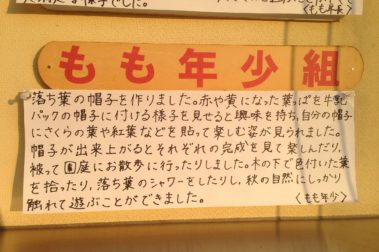 様子でした。
もも年少組
落ち葉の帽子を作りました。赤や黄になった葉っぱを牛乳
パックの帽子に付ける様子を見せると興味を持ち,自分の帽子
にさくらの葉や紅葉などを貼って楽しむ姿が見られました。
帽子が出来上がるとそれぞれの完成を見て楽しんだり,
被って園庭にお散歩に行ったりしました。木の下で色付いた葉
を拾ったり,落ち葉のシャワーをしたりし,秋の自然にしっかり
触れて遊ぶことができました。
〈もも年少〉